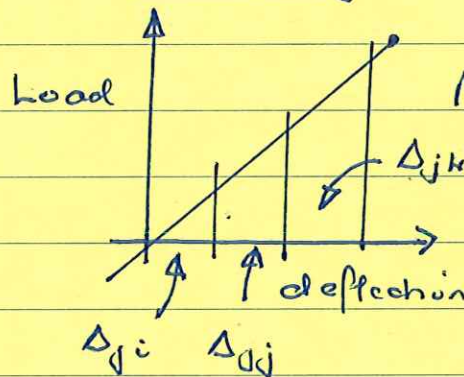 Load
Δjk
deflection
Δji Δjj